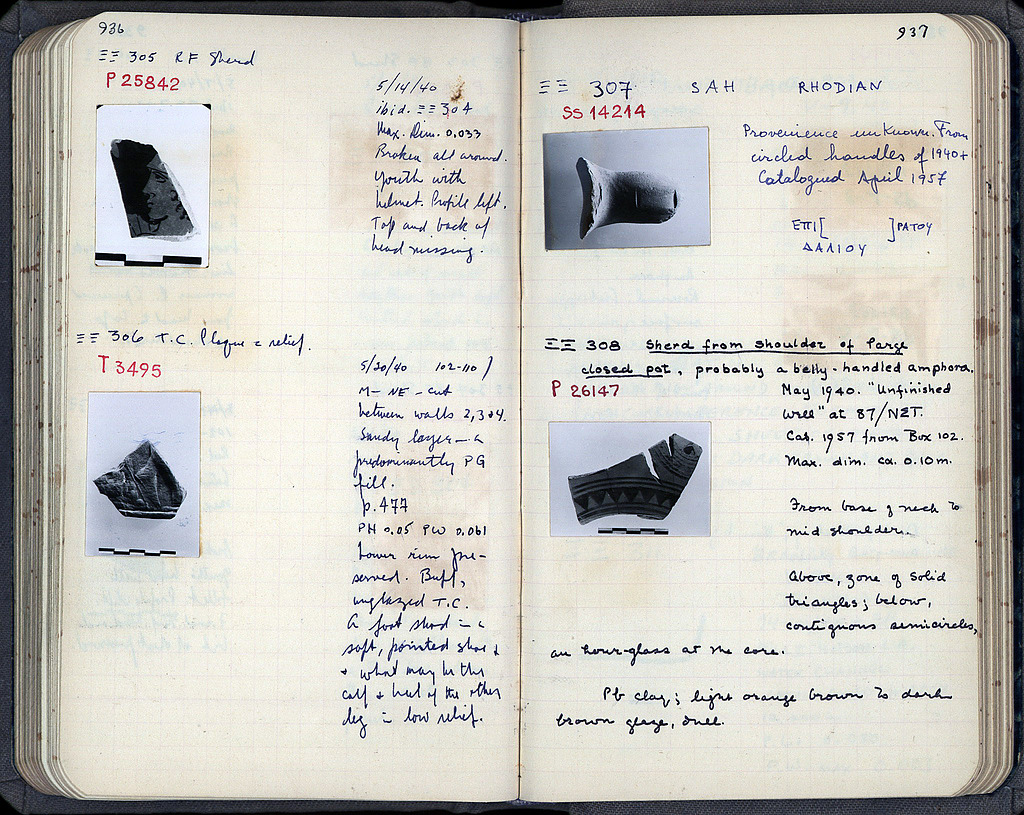 936
ΞΞ 305 RF Sherd
P 25842
5/14/40
ibid. ΞΞ 304
Max. Dim. 0.033
Broken all around.
Youth with
helmet. Profile left.
Top and back of
head missing.
ΞΞ 306 T.C. Plaque c relief.
T 3495
5/20/40 102-110
M- NE - cut
between walls 2,3+4.
Sandy layer - a
predominantly PG
fill.
p. 477
PH 0.05 PW 0.061
Lower rim pre-
served. Buff,
unglazed T.C.
A foot shod in a
soft, pointed shoe &
& what may be the
calf & heel of the other
leg in low relief.
937
ΞΞ 307 SAH RHODIAN
SS 14214
Provenience unknown. From
circled handles of 1940+
Catalogued April 1957
ΕΠΙ[ ]ΡΑΤΟΥ
ΔΑΛΙΟΥ
ΞΞ 308 Sherd from shoulder of large
closed pot, probably a belly-handled amphora.
P 26147
May 1940. "Unfinished
well" at 87/NET.
Cat. 1957 from Box 102.
Max. dim. ca. 0.10m.
From base of neck to
mid shoulder.
Above, zone of solid
triangles; below,
contiguous semicircles,
an hour-glass at the core.
Pb clay; light orange brown to dark
brown glaze, dull.